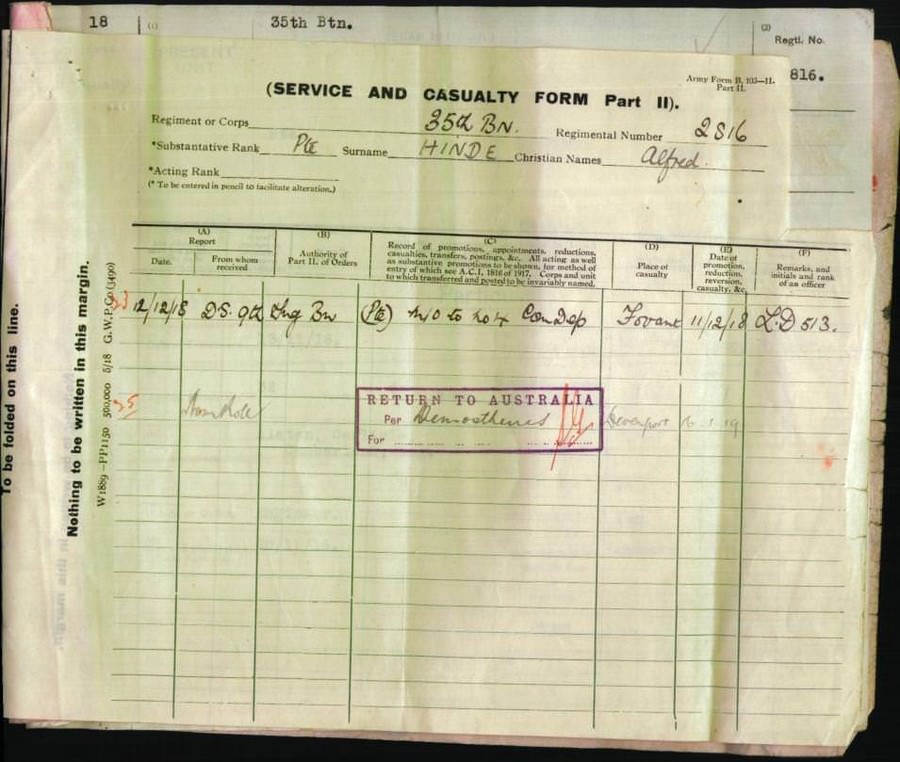 18 (1) 35th Btn. (2)
Regtl. No.
816.
Army Form B. 103—II.
Part II.
(SERVICE AND CASUALTY FORM Part II).
Regiment or Corps 35th BN. Regimental Number 2816
*Substantive Rank Pte Surname HINDE Christian Names Alfred.
*Acting Rank
(* To be entered in pencil to facilitate alteration.)
(A)
Report
Date.
From whom received
(B)
Authority of
Part II. of Orders
(C)
Record of promotions, appointments, reductions,
casualties, transfers, postings, &c. All acting as well
as substantive promotions to be shown, for method of
entry of which see A.C.I. 1816 of 1917. Corps and unit
to which transferred and posted to be invariably named.
(D)
Place of
casualty
(E)
Date of
promotion,
reduction,
reversion,
casualty, &c.
(F)
Remarks, and
initials and rank
of an officer
12/12/18 D.S. 9th Trng Bn (Pte) M/O to No 4 Com Dep Fovant 11/12/18 L.D 513.
RETURN TO AUSTRALIA
Per Demosthenes Devonport
For
To be folded on this line.
Nothing to be written in this margin.
W1889—PP1150 500,000 5/18 G.W.P.Co.(3490)